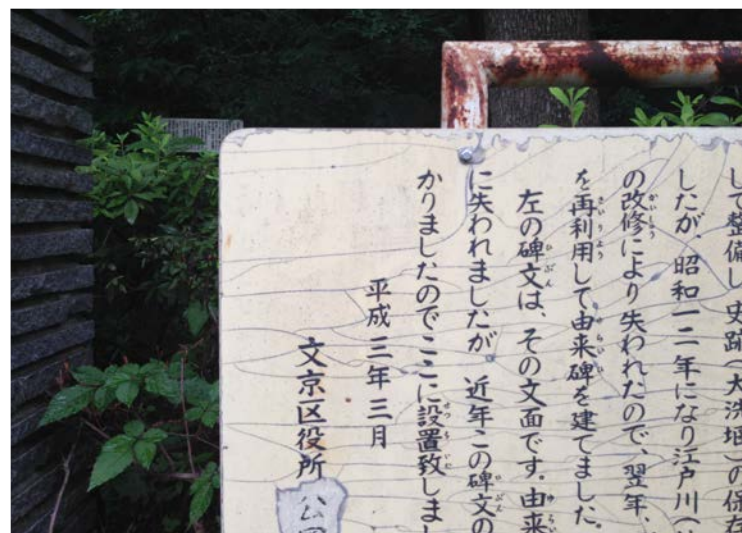 して整備し史跡(大洗堰)の保存
したが、昭和一二年になり江戸川(
の改修により失われたので、翌年、
を再利用して由来碑を建てました。
左の碑文は、その文面です。由来
に失われましたが。近年この碑文の
かりましたのでここに設置致しまし
平成三年三月
文京区役所 公